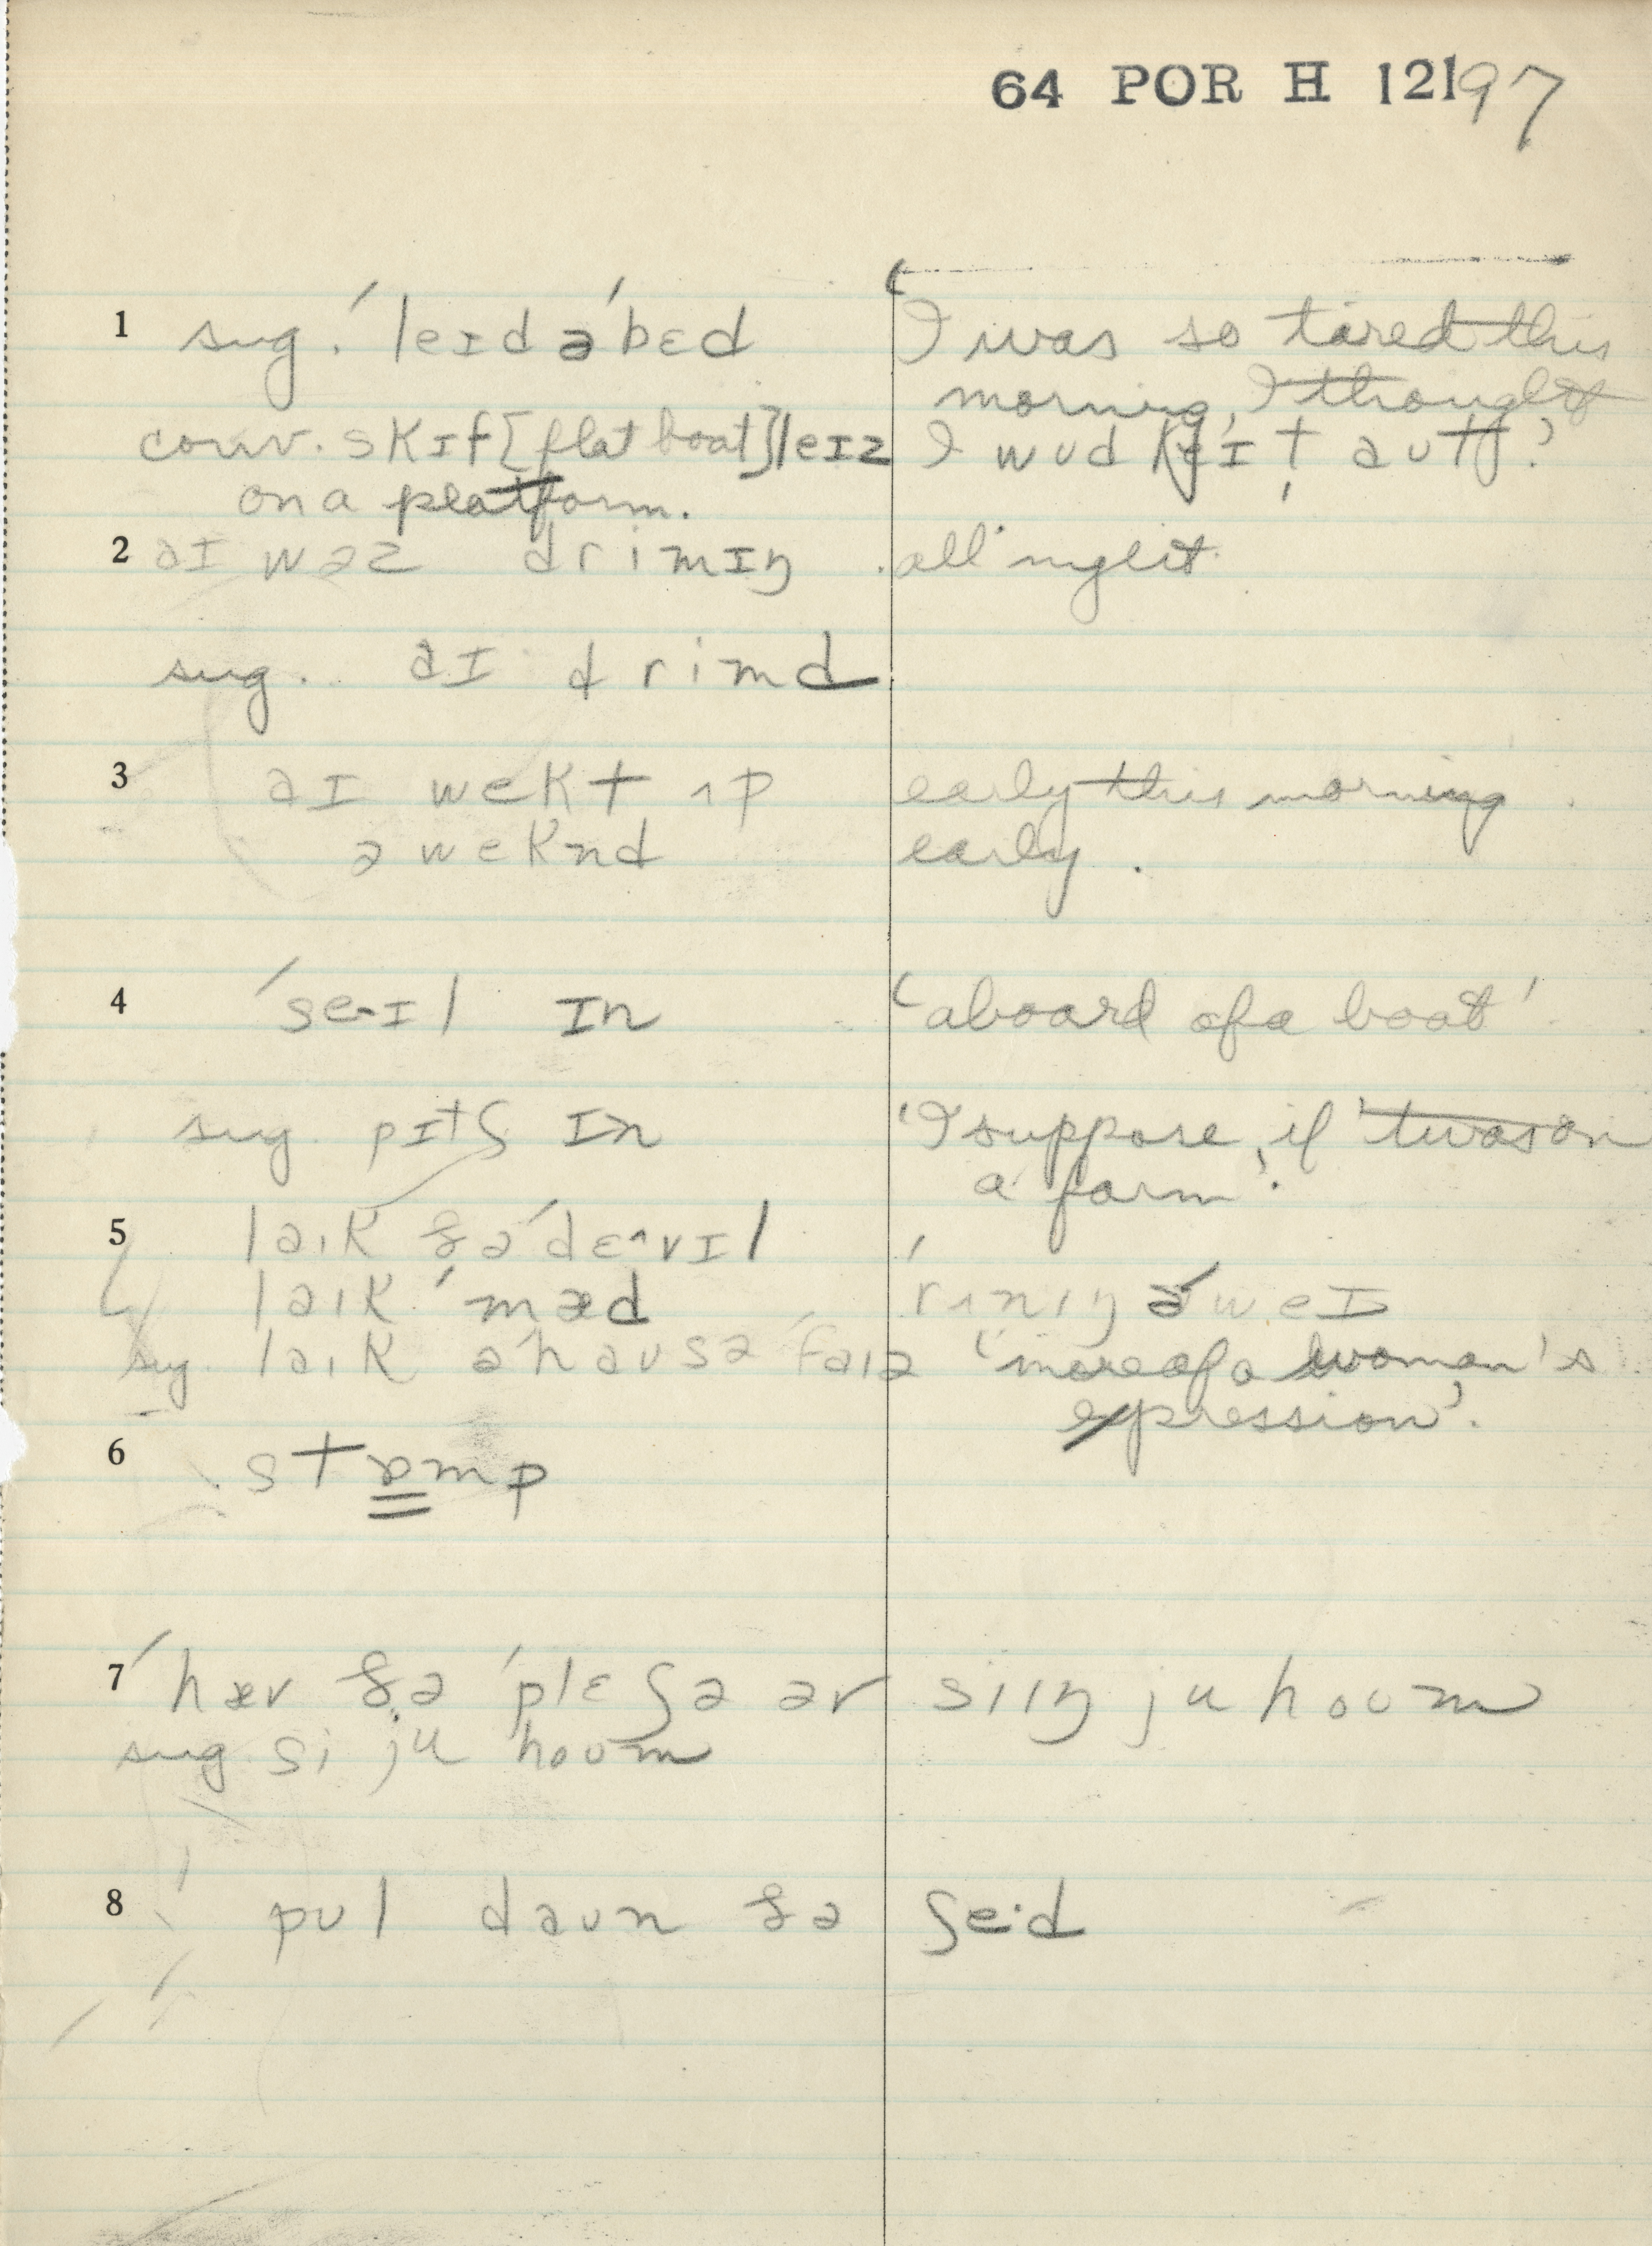 64 POR H 12197
1 sug. ˈleɪd əˈbɛd I was so tired this
morning, I thought
conv. skɪf [flat boat] leɪz I wʊd keɪt aʊt'
on a platform.
2 aɪ wəz drimɪŋ all night.
sug. aɪ drimd
3 aɪ wekt ʌp early this morning.
əweknd early.
4 ˈseɪl ɪn 'aboard of a boat'
sug. pɪtʃ ɪn 'I suppose, if 'twas on
a farm'.
5 laɪk ðəˈdɛvɪl
laɪk ˈmæd ˈrʌnɪŋ əˈweɪ
sug. laɪk əˈhaʊs əˈfaɪə 'more of a woman's
expression'.
6 stɒmp
7 ˈhæv ðə ˈplɛʒə əv siɪŋ ju hoʊm
sug si ju hoʊm
8 pʊl daʊn ðə ʃeˑd